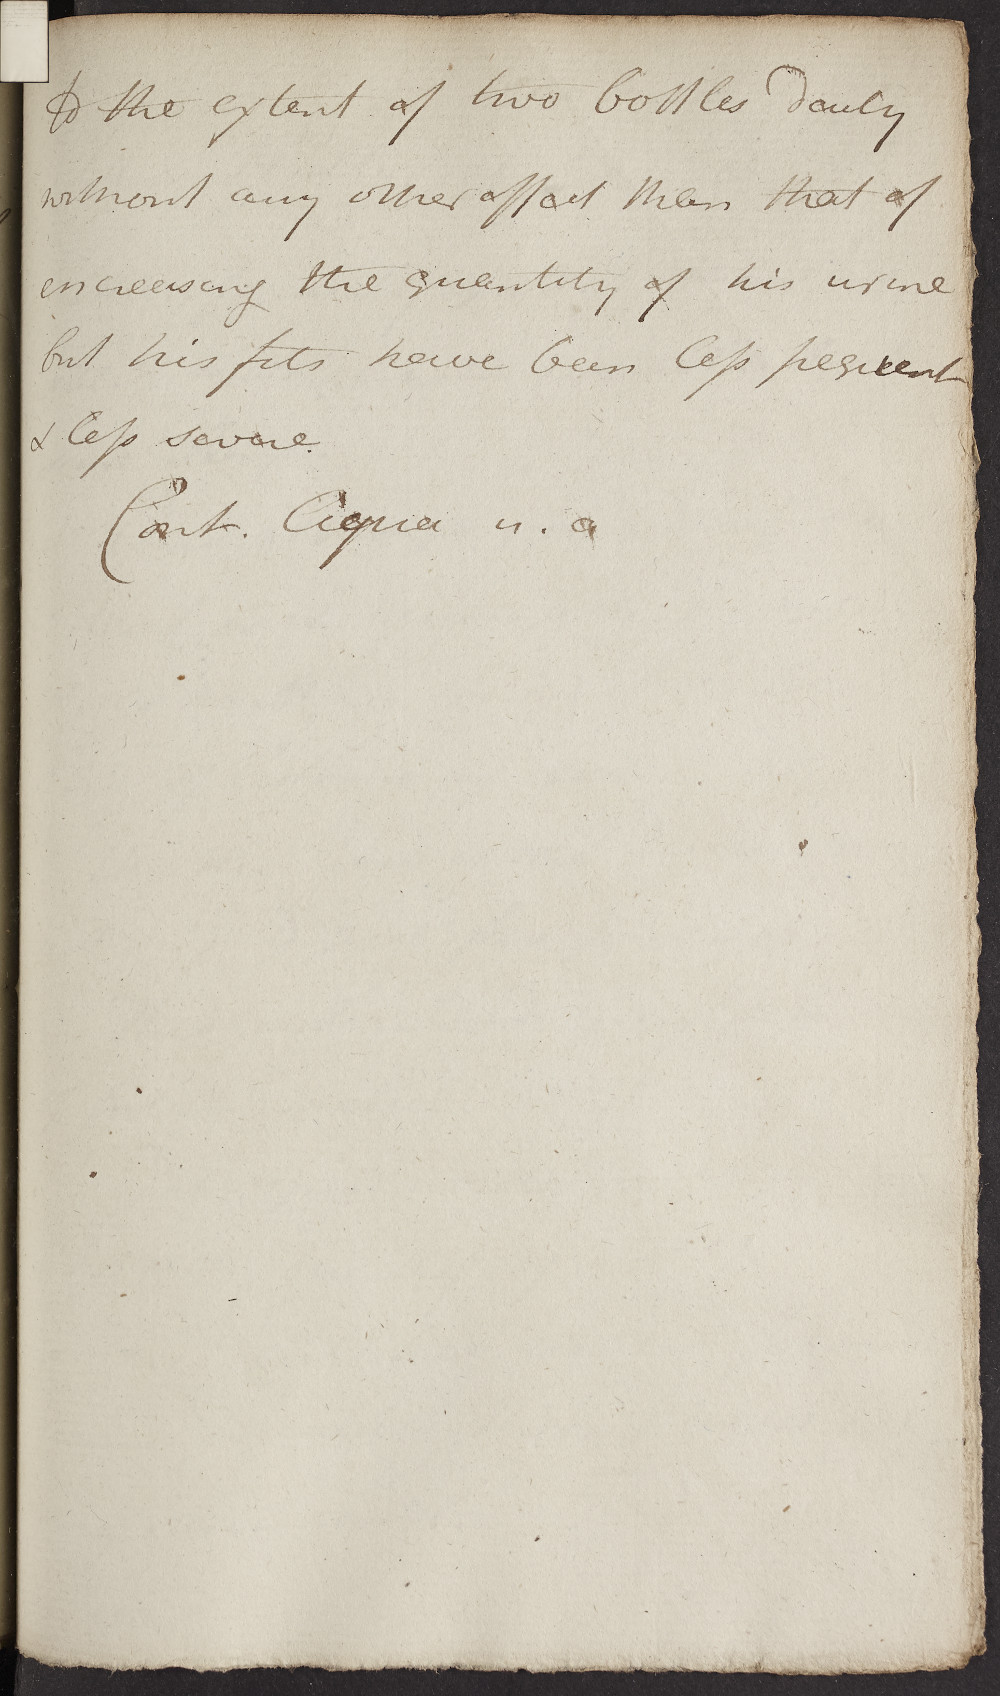 to the extent of two bottles daily
without any other effect than that of
encreasing the quantity of his urine
but his fits have been less frequent
& less severe.
Cont. Aqua u. a